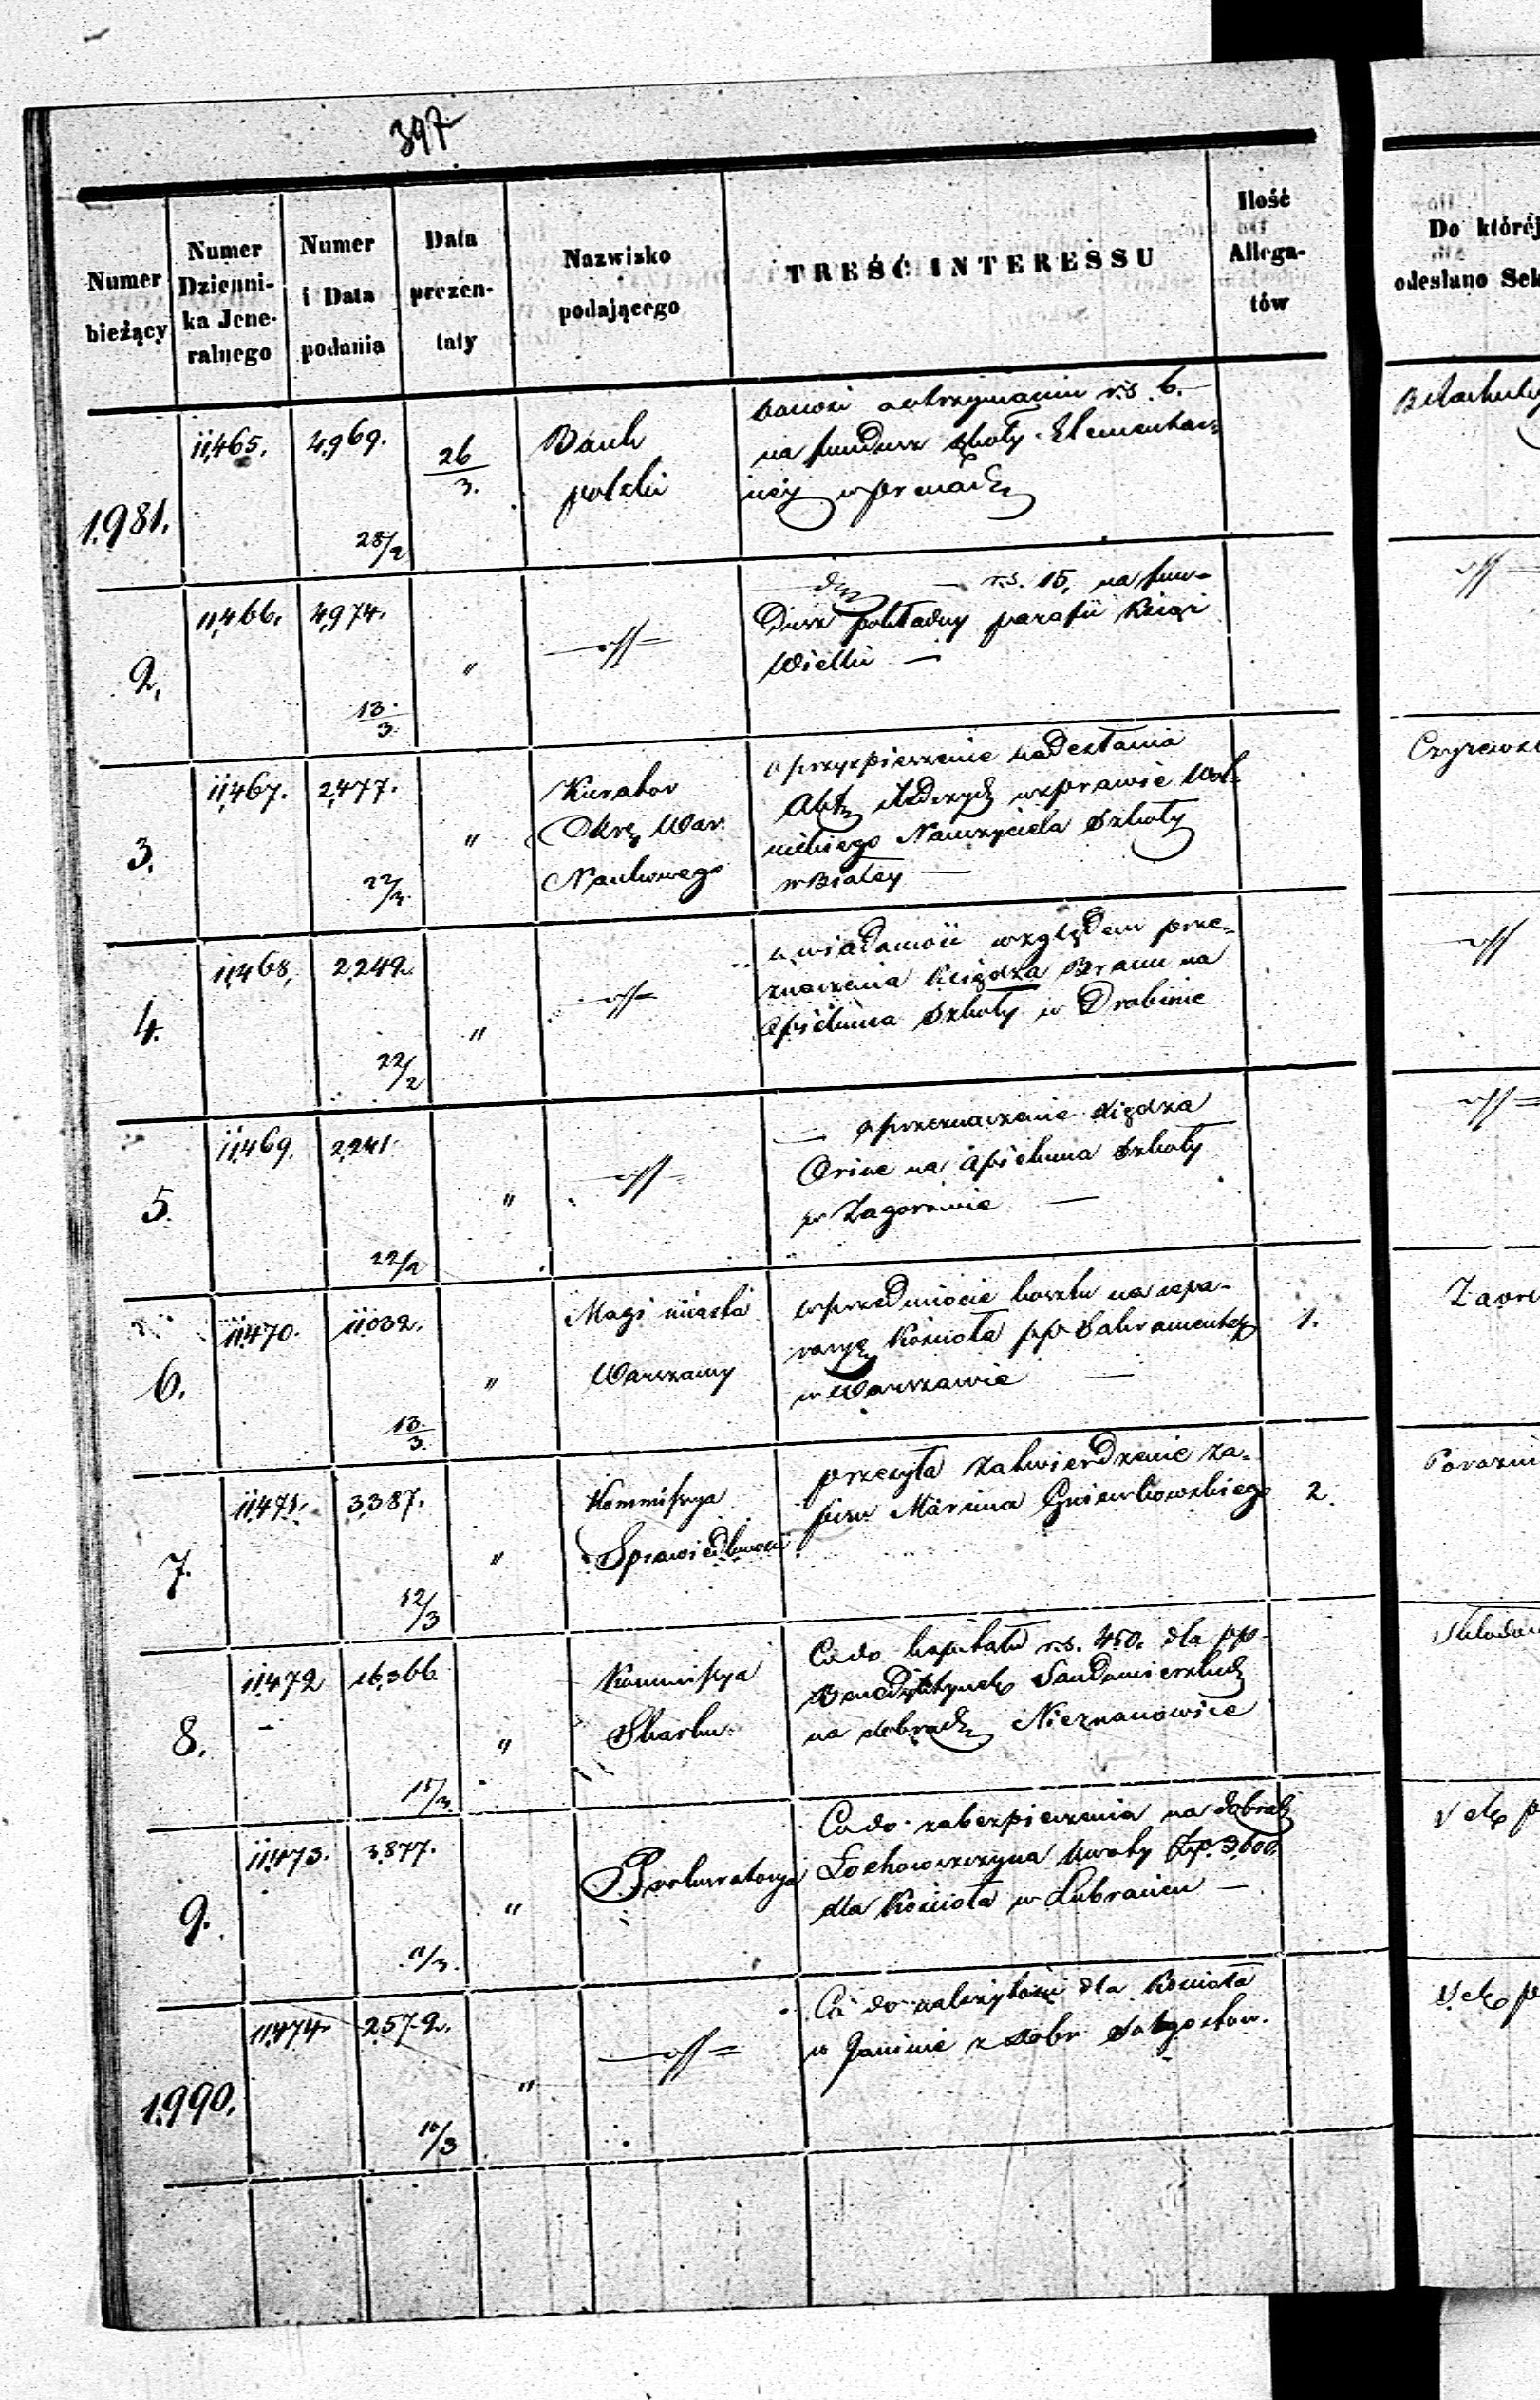 397
Numer bieżący
Numer Dzienni-ka Jene-ralnego
Numer i Data podania
Data prezen-taty
Nazwisko podającego
TREŚĆ INTERESSU
Ilość Allega-tów
Do którój
odesłano Sek
1981.
11,465.
4,969.
28/2
26/3.
Bank
polski
donosi o otrzymaniu r.s. 6.
na fundusz szkoły Elementar=
ney w
2.
11,466.
4,974.
13/3
"
— r.s. 15, na fun-
dusz pokładny parafii Xiąż
Wielki —
3.
11,467.
2,477.
22/3.
"
Kurator
Okrę. War.
Naukowego
o przyspieszenie nadesłania
Akt w sprawie Wol-
nickiego Nauczyciela Szkoły
w Białey —
Czyżewsk
4.
11,468.
2,249.
22/2
"
o wiadomość względem prze-
znaczenia Księdza Braun na
opiekuna Szkoły w Drobinie
5.
11,469.
2,241.
22/2
"
— o przeznaczenie Xiędza
na opiekuna Szkoły
w Zagorowie —
6.
11,470.
11,032.
13/3.
"
Magi. miasta
Warszawy
w przedmiocie kosztu na repa-
racyę Kościoła pp Sakramentek
w Warszawie —
1.
7.
11,471.
3,387.
12/3
"
Kommissya
Sprawiedliwości
przesyła zatwierdzenie za-
pisu Marcina Gniewkowskiego
2.
8.
11,472
16,366
15/3.
"
Kommissya
Skarbu.
Co do kapitału r.s. 450. dla pp-
Benedyktynek Sandomierskich
na dobrach Nieznanowice
9.
11,473.
3,877.
11/3.
"
Prokuratorya
Co do zabezpieczenia na dobrach
Łochowszczyzna kwoty złp. 3,600.
dla Kościoła w Lubraniu —
1,990.
11,474.
2,572.
10/3
"
Co do należytości dla Kościoła
w Janinie z dobr